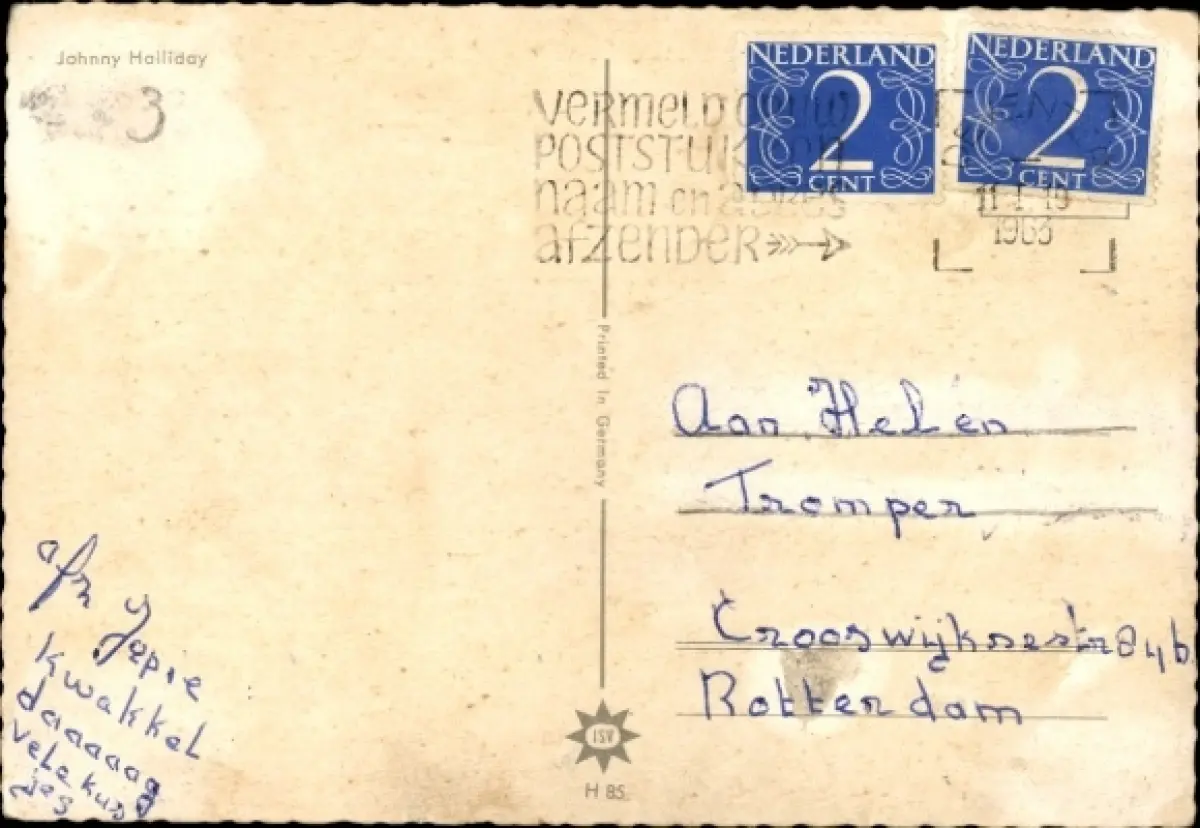 Johnny Halliday
3
NEDERLAND
2
CENT
NEDERLAND
2
CENT
VERMELD
POSTSTUKKEN
naam en adres
afzender
11.1.19
1963
Printed In Germany
Aan Helen
Tromper
Crooswijksestr 84b
Rotterdam
afz Jepie
Kwakkel
daaaaag
vele kuss
jes
ISV
H 85